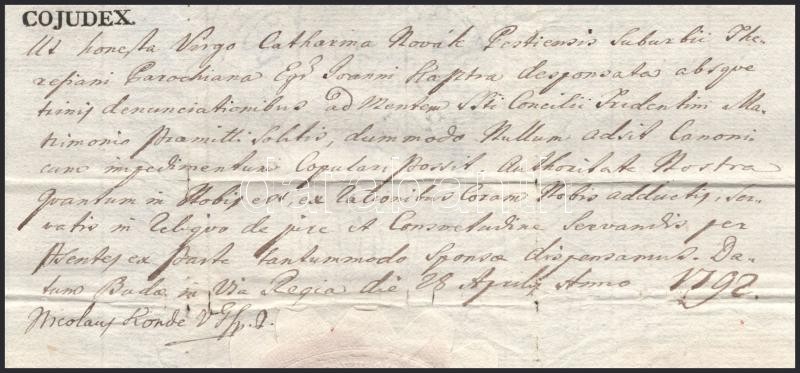 COJUDEX.
Ut honesta Virgo Catharina Novák Pestiensis Suburbii The-
resiani Parochiana Joanni desponsata absque
trinis denunciationibus ad Mentem Sti Concilii Tridentini Ma-
trimonio praemitti solitis, dummodo Nullum adsit Canoni
cum impedimentum Copulari possit. Authoritate Nostra
quantum in Nobis est, ex rationibus Coram Nobis adductis, Ser-
vatis in Reliquo de jure et Consvetudine Servandis, per
psentes ex parte tantummodo Sponsae dispensamus. Da-
tum Budae in Via Regia die 28 Aprilis Anno 1792.
Nicolaus Konde